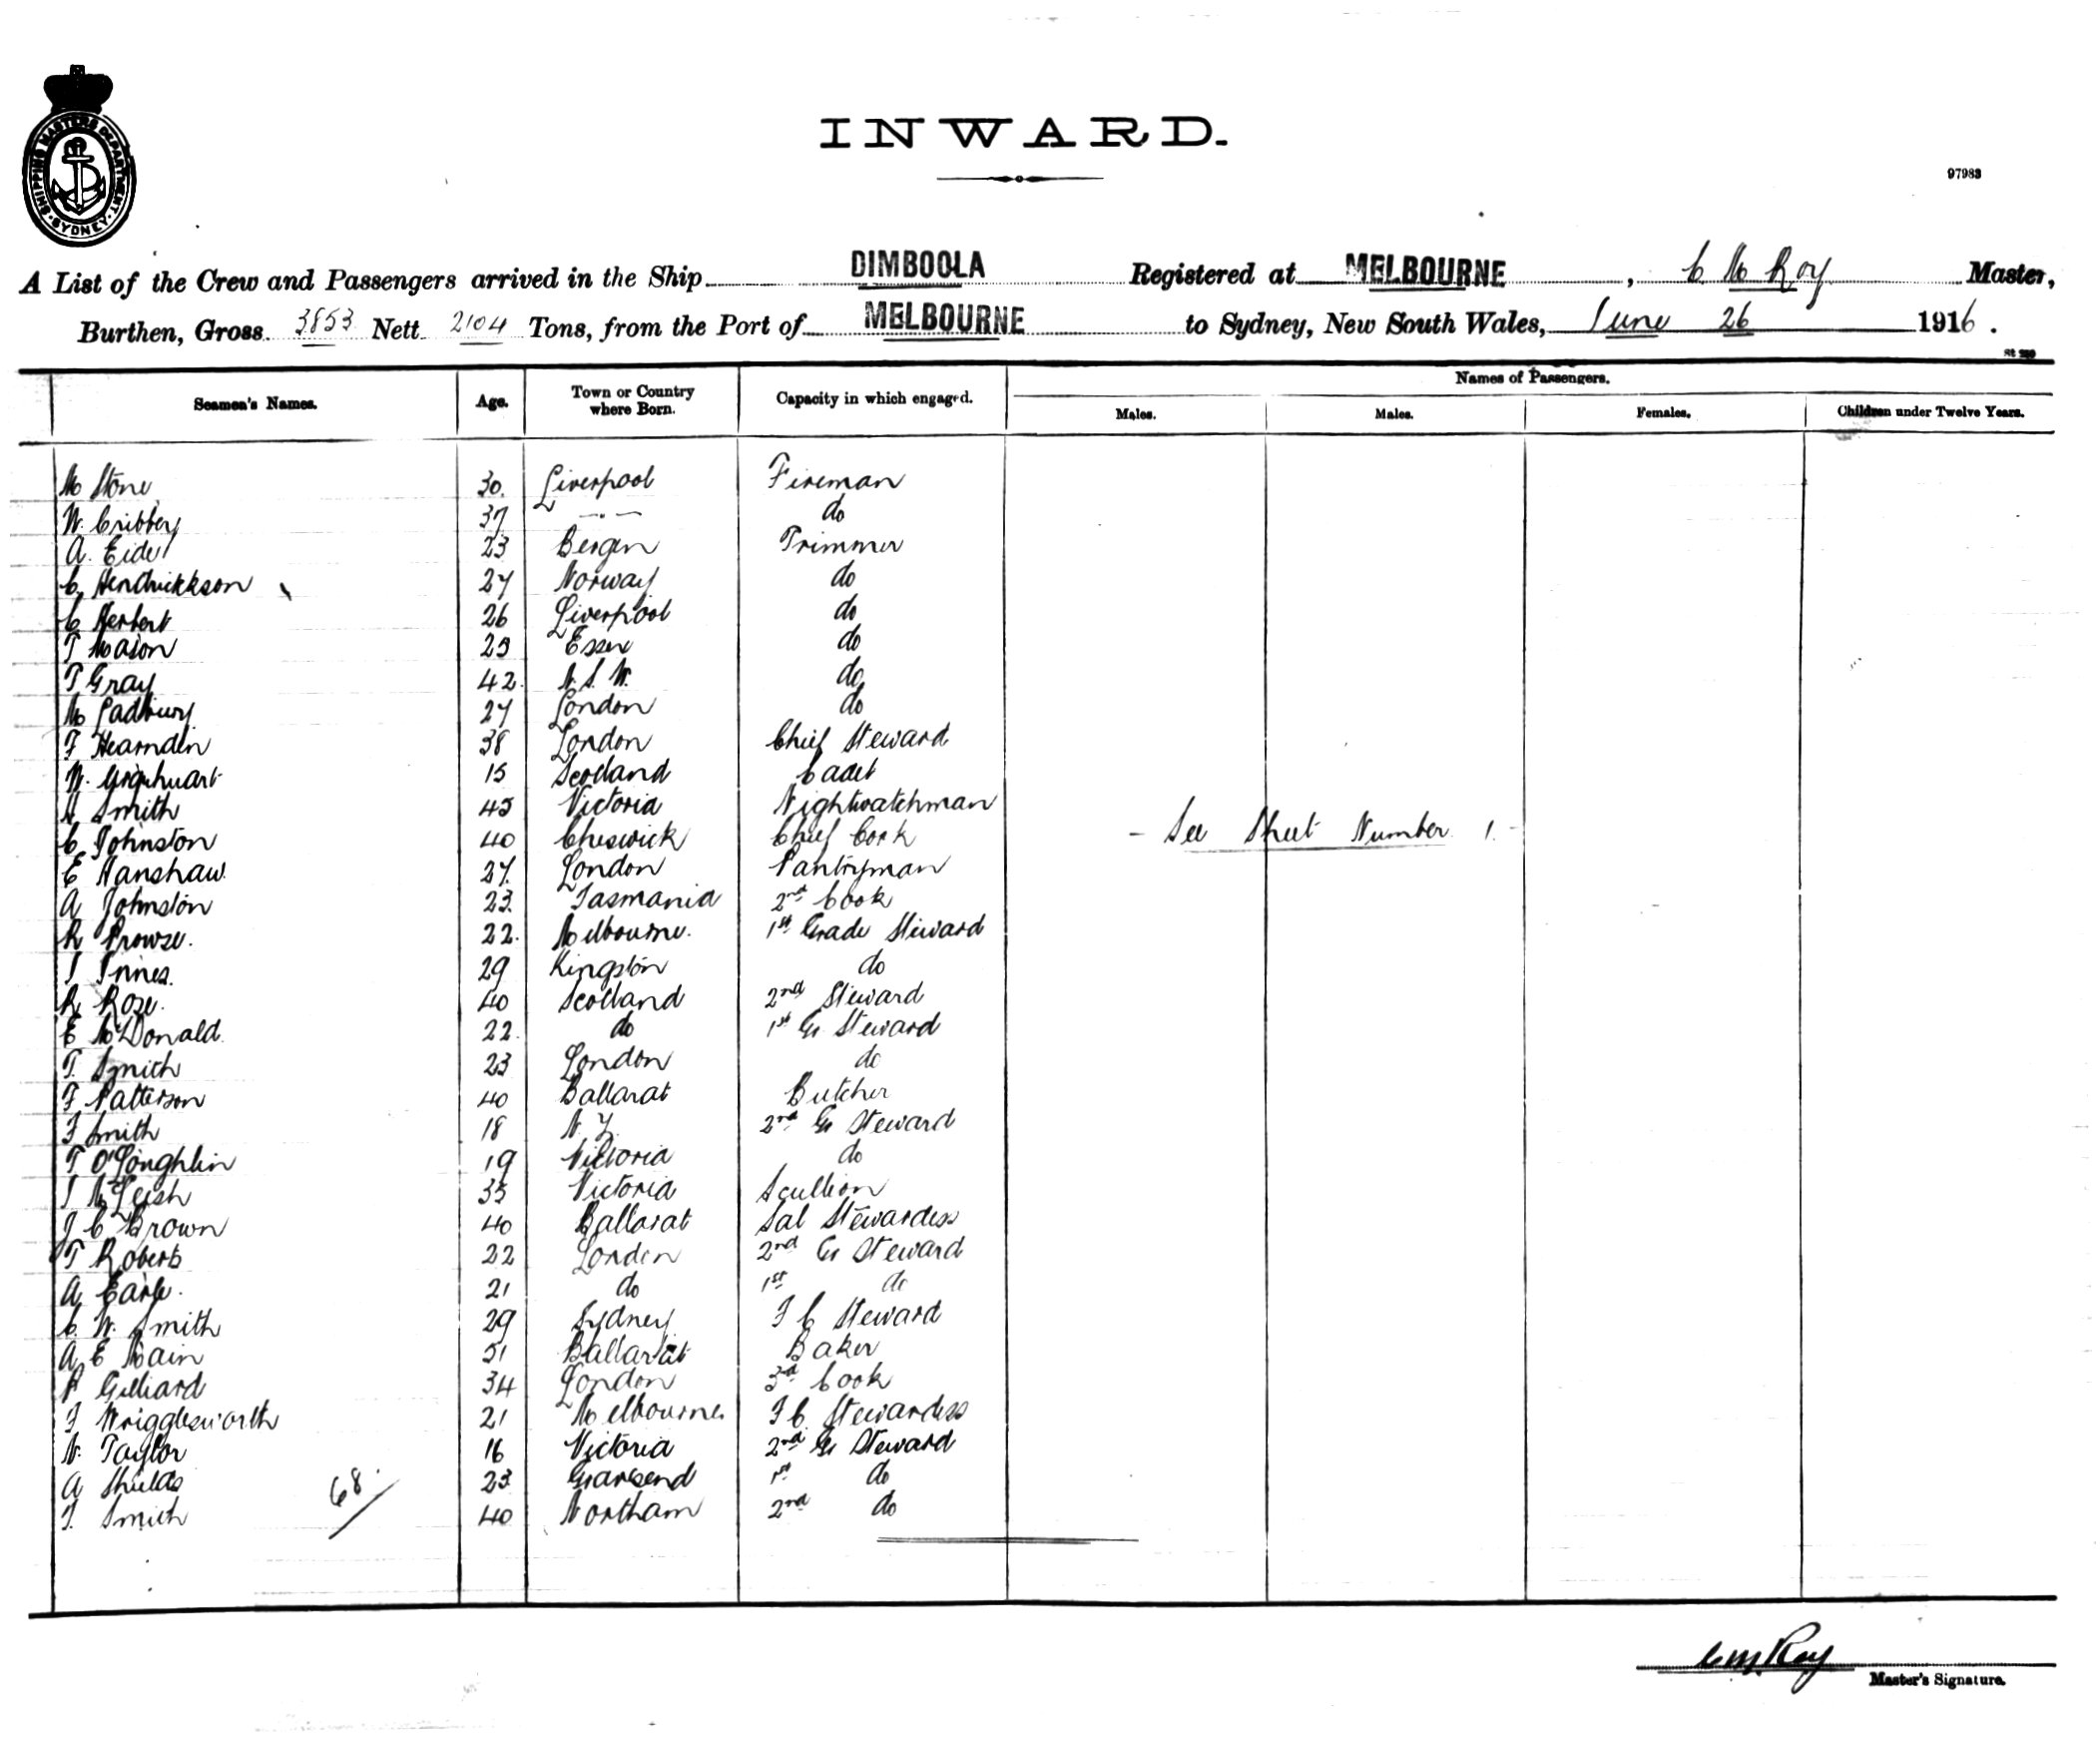 SHIPPING MASTERS DEPARTMENT. SYDNEY
INWARD.
97983
A List of the Crew and Passengers arrived in the Ship DIMBOOLA Registered at MELBOURNE, C M Roy Master,
Burthen, Gross 3853 Nett 2104 Tons, from the Port of MELBOURNE to Sydney, New South Wales, June 26 1916.
Names of Passengers.
Seamen's Names. Age. Town or Country where Born. Capacity in which engaged. Males. Males. Females. Children under Twelve Years.
M Stone 30. Liverpool Fireman
W. Cribbey 37 do
A. Eide 23 Bergen Trimmer
C Hendrickkson 27 Norway do
C Herbert 26 Liverpool do
T Mason 23 Essex do
T Gray 42. N.S.W. do
M Padbury 27 London do
F Hearnden 38 London Chief Steward
W. Urquhuart 15 Scotland Cadet
A Smith 45 Victoria Nightwatchman
C Johnston 40 Cheswick Chief Cook
- See Sheet Number 1. -
E Hanshaw. 27. London Pantryman
A Johnston 23. Tasmania 2nd Cook
R Prowse. 22. Melbourne. 1st Grade Steward
J Innes. 29 Kingston do
R Rose. 40 Scotland 2nd Steward
E McDonald. 22. do 1st Gr Steward
T. Smith 23 London do
F Patterson 40 Ballarat Butcher
F Smith 18 N.Z. 2nd Gr Steward
T O'Loughlin 19 Victoria do
J McLeish 35 Victoria Scullion
J C Brown 40 Ballarat Sal Stewardess
T Roberts 22 London 2nd Gr Steward
A Earle. 21 do 1st do
C. W. Smith 29 Sydney F C Steward
A E Main 51 Ballarat Baker
P Gilliard 34 London 3rd Cook
F Wrigglesworth 21 Melbourne F C. Stewardess
N. Taylor 16 Victoria 2nd Gr Steward
A Shields 23 Gravesend 1st do
F. Smith 40 Northam 2nd do
68
C M Roy
Master's Signature.